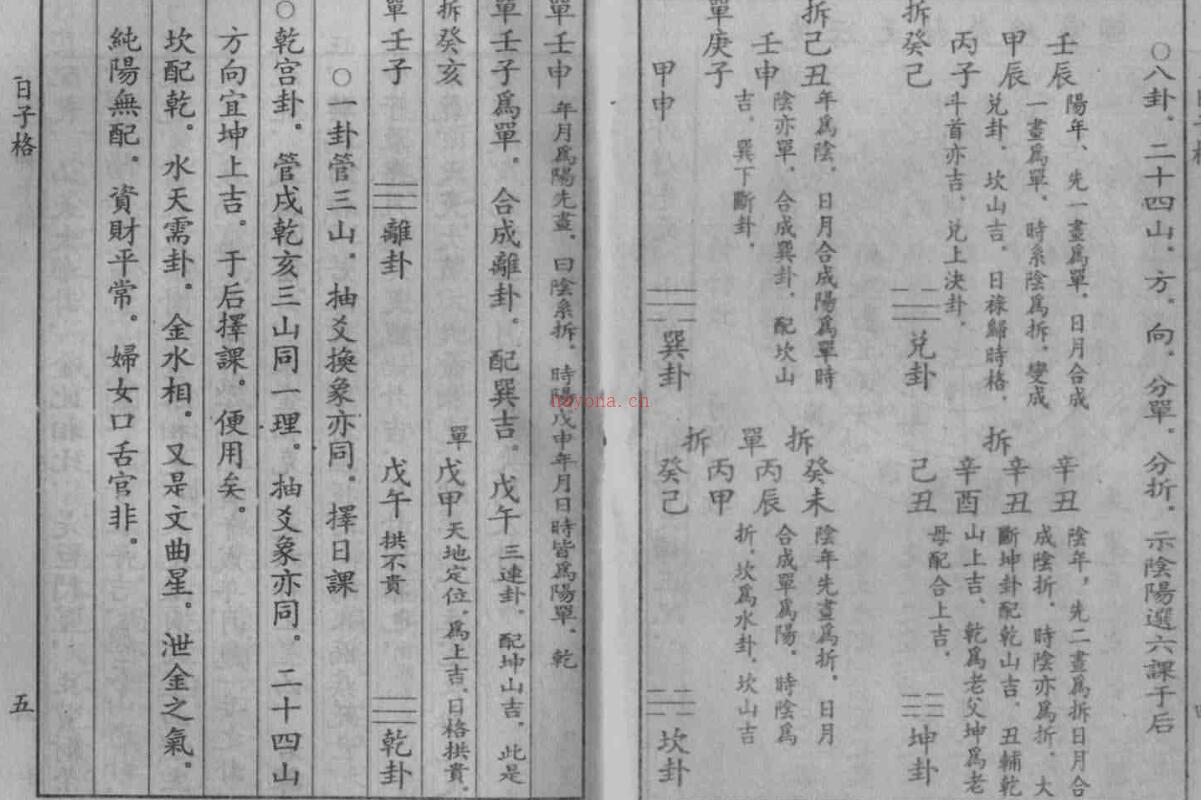 ○八卦．二十四山．方．向．分單．分折．示陰陽選六課于后
壬辰 陽年、先一畫爲單．日月合成
甲辰 一畫爲單．時系陰爲拆．變成
丙子 兌卦、坎山吉。日祿歸時格、
拆 癸己 斗首亦吉．兌上決卦．
兌卦
辛丑 陰年，先二畫爲拆日月合
辛丑 成陰折．時陰亦爲折．大
拆 辛酉 斷坤卦配乾山吉、丑輔乾
己丑 山上吉、乾爲老父坤爲老
母配合上吉．
坤卦
拆 己丑 年爲陰．日月合成陽爲單時
壬申 陰亦單．合成巽卦．配坎山
單 庚子 吉．巽下斷卦．
甲申
巽卦
拆 癸未 陰年先畫爲折．日月
單 丙辰 合成單爲陽．時陰爲
丙甲 折．坎爲水卦．坎山吉
拆 癸己
坎卦
單 壬申 年月爲陽先畫．曰陰系拆．時陽戊申年月日時皆爲陽單．乾
單 壬子爲單．合成離卦．配巽吉．戊午 三連卦．配坤山吉．此是
拆 癸亥 單 戊甲 天地定位．爲上吉．日格拱貴．
單 壬子 離卦 戊午 拱不貴 乾卦
○一卦管三山．抽爻換象亦同．擇日課
○乾宫卦．管戍乾亥三山同一理．抽爻象亦同．二十四山
方向宜坤上吉。于后擇課。便用矣。
坎配乾．水天需卦．金水相．又是文曲星．泄金之氣．
純陽無配．資財平常．婦女口舌官非．
日子格
五
nayona.cn